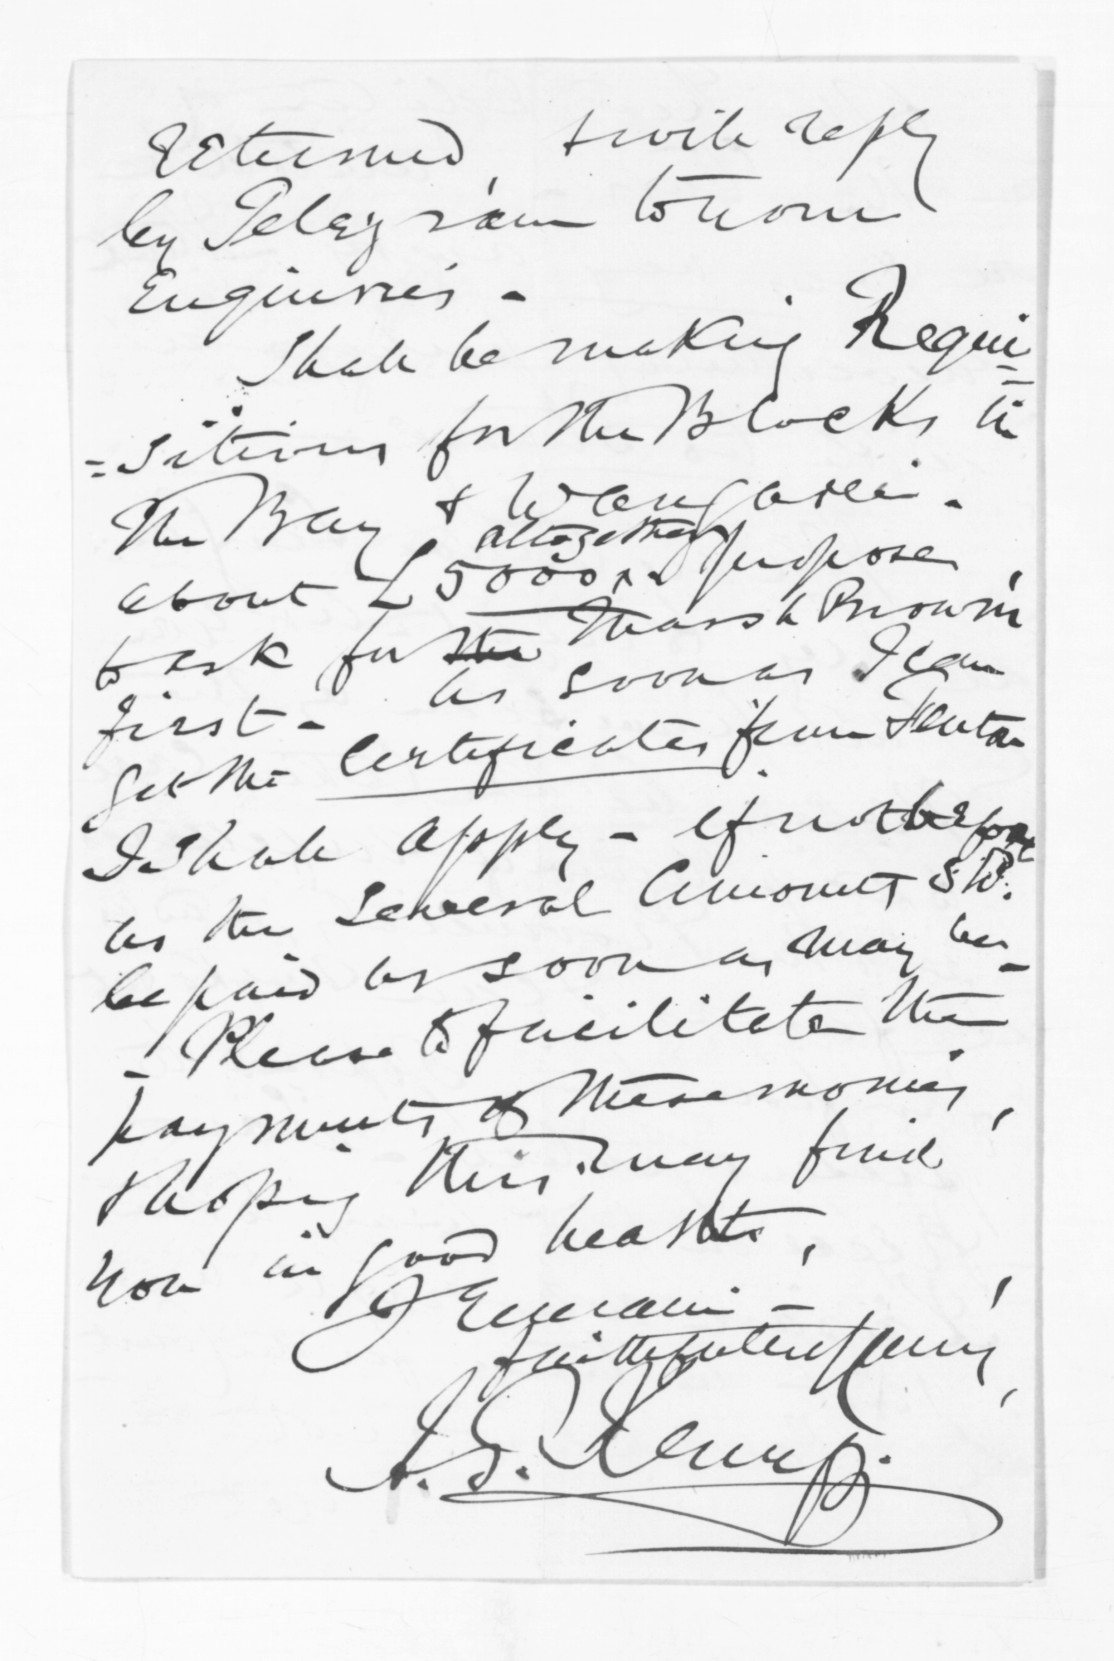 returned, & will reply
by Telegram to your
Enquiries -
Shall be making Requi
=sitions for the Blocks in
the Bay & Wangarei.
altogether
about £5000.. propose,
to ask for the Marsh Brown
first - as soon as I can
get the Certificates from Fenton
I shall apply - if not before
as the several Amounts Shd.
be paid as soon as may be -
- Please to facilitate the
payments of these monies,
& hoping this may find
you in good health,
I Remain -
faithfully yours,
H. T. Kemp.